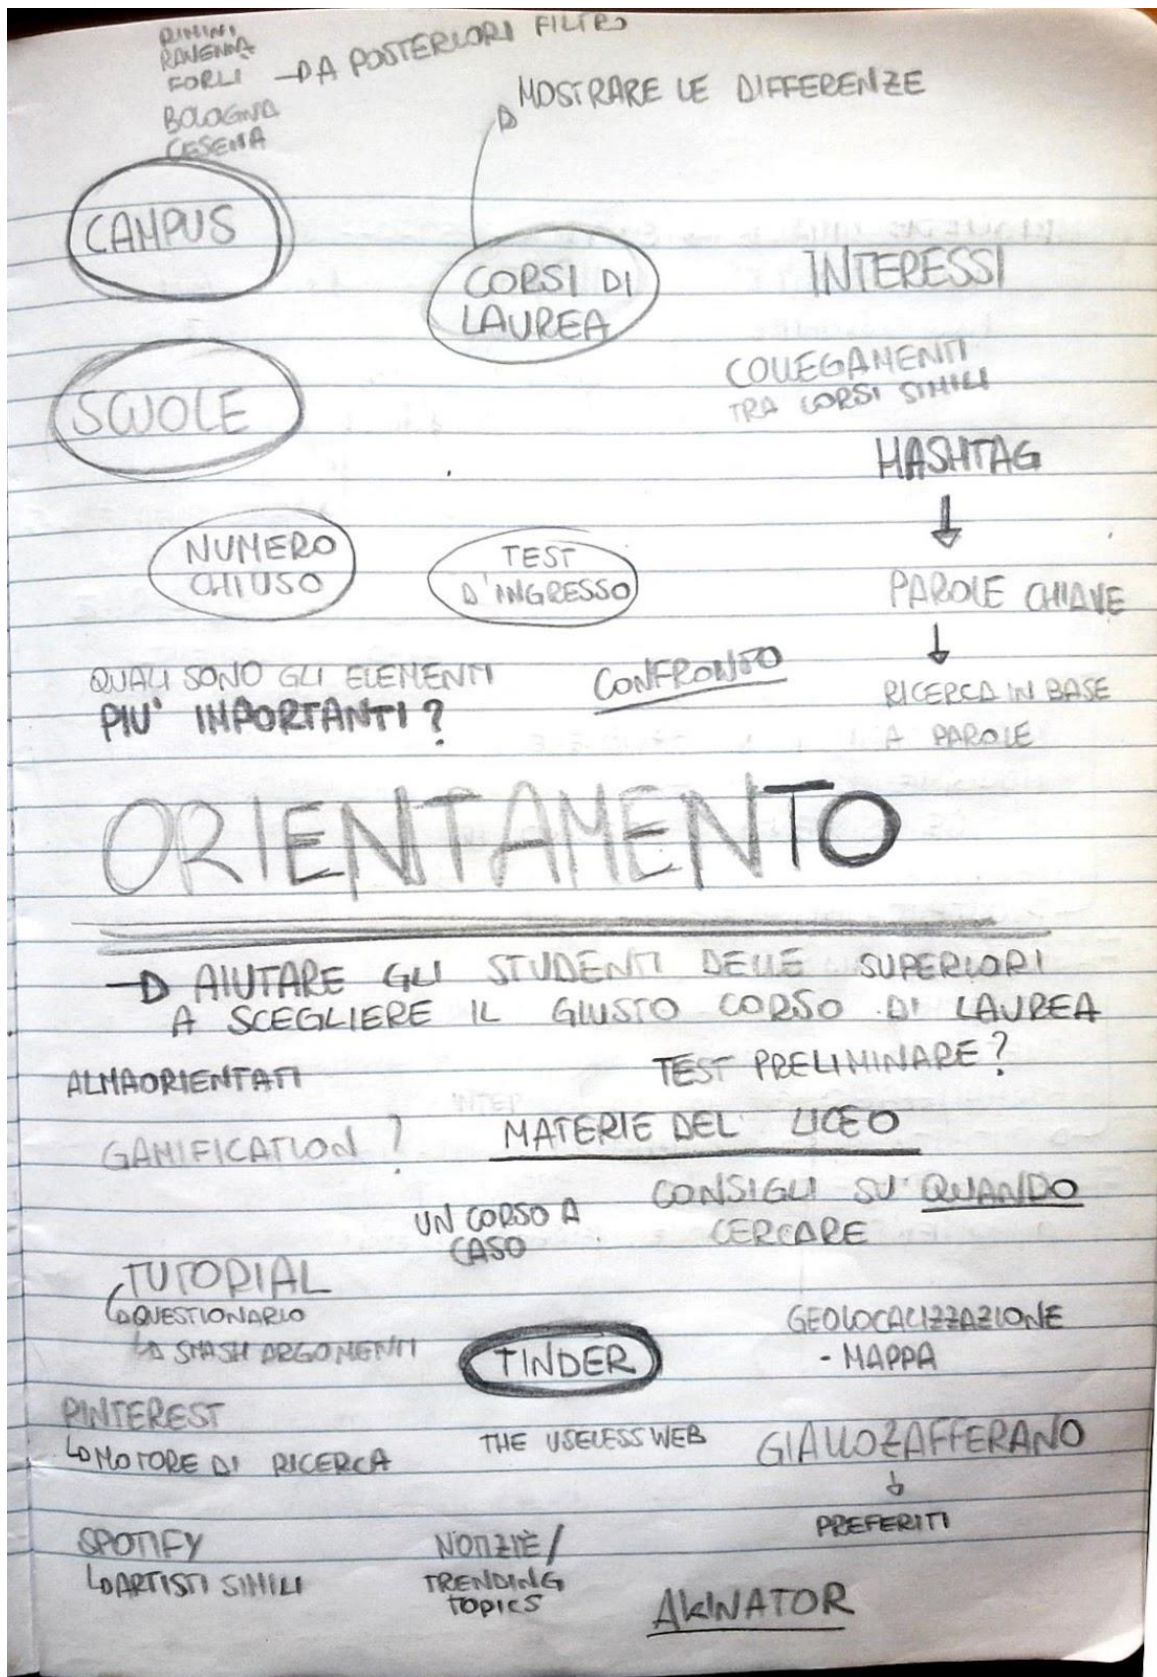 RIMINI
RAVENNA
FORLÌ → A POSTERIORI FILTRO
BOLOGNA
CESENA
MOSTRARE LE DIFFERENZE
CAMPUS
CORSI DI
LAUREA
INTERESSI
SCUOLE
COLLEGAMENTI
TRA CORSI SIMILI
HASHTAG
NUMERO
CHIUSO
TEST
D'INGRESSO
PAROLE CHIAVE
QUALI SONO GLI ELEMENTI
PIU' IMPORTANTI?
CONFRONTO
RICERCA IN BASE
A PAROLE
ORIENTAMENTO
→ AIUTARE GLI STUDENTI DELLE SUPERIORI
A SCEGLIERE IL GIUSTO CORSO DI LAUREA
ALMAORIENTATI
TEST PRELIMINARE?
GAMIFICATION?
MATERIE DEL LICEO
UN CORSO A
CASO
CONSIGLI SU QUANDO
CERCARE
TUTORIAL
QUESTIONARIO
SMASH ARGOMENTI
TINDER
GEOLOCALIZZAZIONE
- MAPPA
PINTEREST
MOTORE DI RICERCA
THE USELESS WEB
GIALLOZAFFERANO
PREFERITI
SPOTIFY
ARTISTI SIMILI
NOTIZIE/
TRENDING
TOPICS
AKINATOR